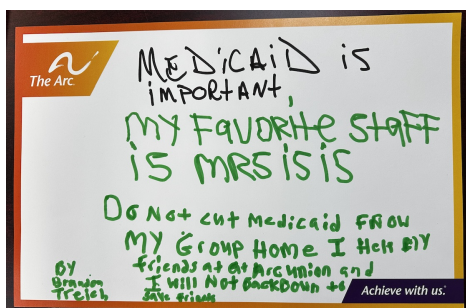 The Arc.
MEDiCAiD is
iMPORtANt,
MY FAVORitE StAFF
iS MRS iSiS
Do Not cut Medicaid FROM
MY GROUP HOME I Help MY
friends at Arc union and
I will Not BackDown to
save friends
BY
Brandon
Treich
Achieve with us.